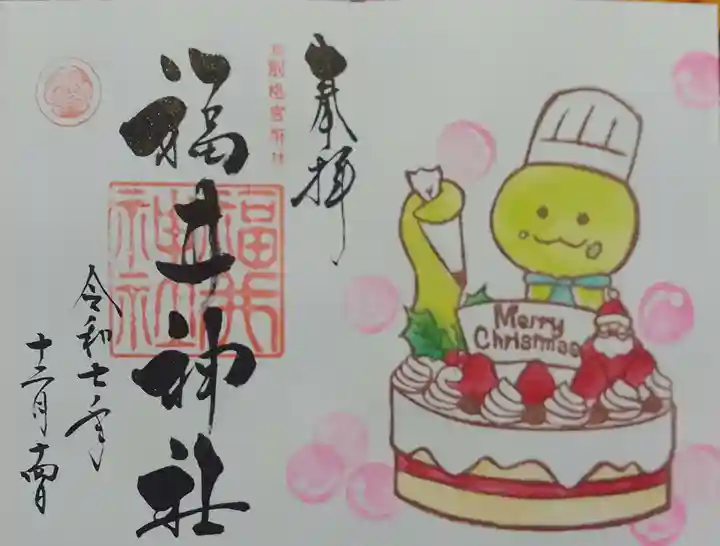 奉拝
別格官幣社
福井神社
福井神社
令和七年
十二月十四日
Merry
Christmas